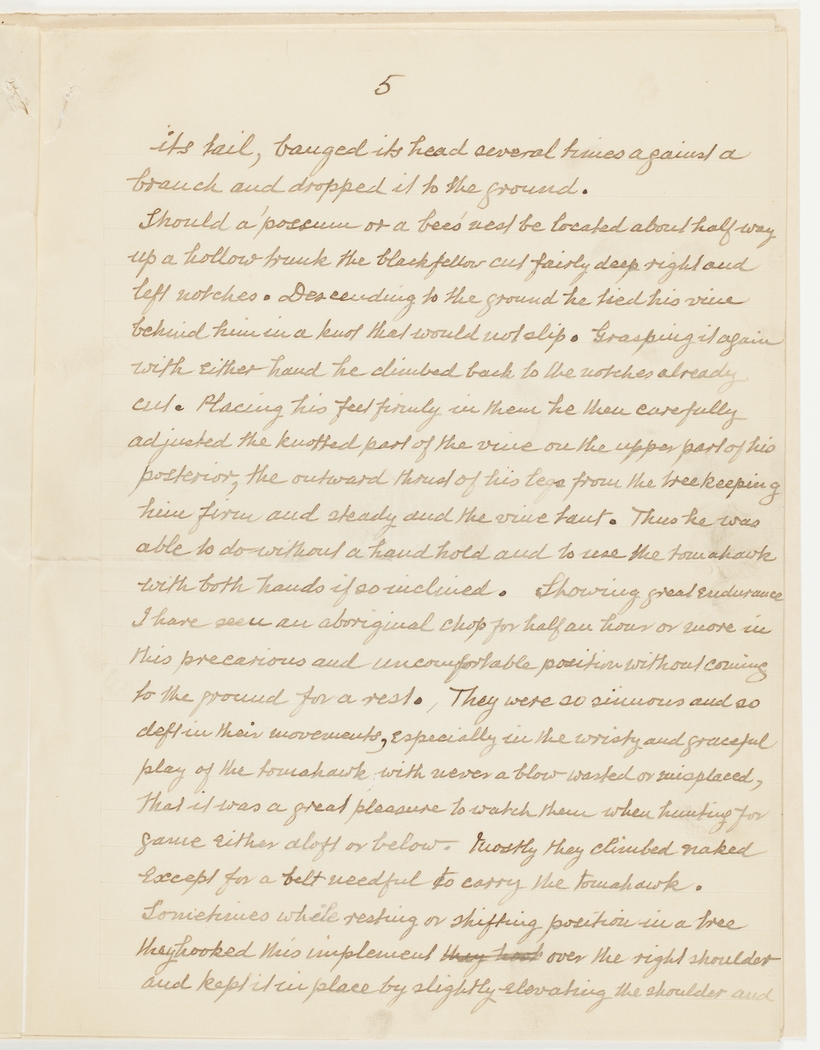 5
its tail, banged its head several times against a
branch and dropped it to the ground.
Should a 'possum or a bees' nest be located about half way
up a hollow trunk the blackfellow cut fairly deep right and
left notches. Descending to the ground he tied his vine
behind him in a knot that would not slip. Grasping it again
with either hand he climbed back to the notches already
cut. Placing his feet firmly in them he then carefully
adjusted the knotted part of the vine on the upper part of his
posterior, the outward thrust of his legs from the tree keeping
him firm and steady and the vine taut. Thus he was
able to do without a hand hold and to use the tomahawk
with both hands if so inclined. Showing great endurance
I have seen an aboriginal chop for half an hour or more in
this precarious and uncomfortable position without coming
to the ground for a rest., They were so sinuous and so
deft in their movements, especially in the wristy and graceful
play of the tomahawk with never a blow wasted or misplaced,
that it was a great pleasure to watch them when hunting for
game either aloft or below. Mostly they climbed naked
Except for a belt needful to carry the tomahawk.
Sometimes while resting or shifting position in a tree
they hooked this implement they hook over the right shoulder
and kept it in place by slightly elevating the shoulder and